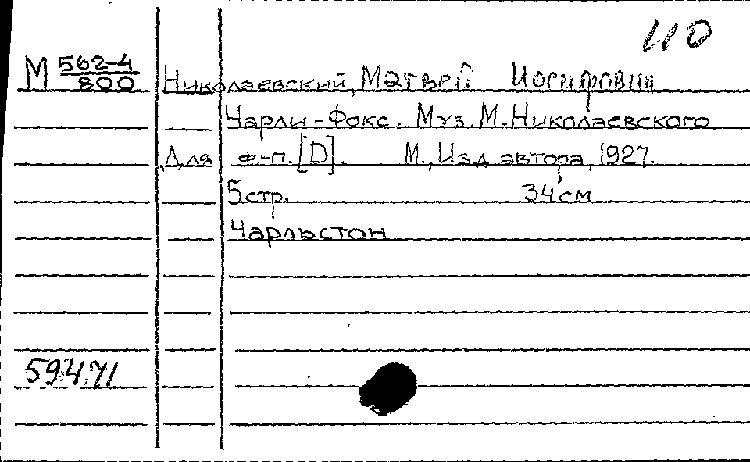 110
М 562-4/800 Николаевский, Матвей Иосифович
Чарли-Фокс. Муз. М. Николаевского
Для ф-п. [D]. М., Изд. автора, 1927.
5 стр. 34 см
Чарльстон
59471